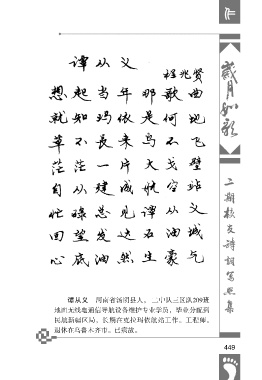 谭从义
程兆贤
想起当年那歌曲
就知玛依是何地
草不长来鸟不飞
茫茫一片大戈壁
自从建成航空站
忙碌总见谭从义
回望发达石油城
心底油然生豪气
谭从义 河南省汤阴县人。二中队三区队209班
地面无线电通信导航设备维护专业学员,毕业分配到
民航新疆区局,长期在克拉玛依航站工作。工程师。
退休在乌鲁木齐市。已病故。
岁月如歌
二期校友诗词写照集
449